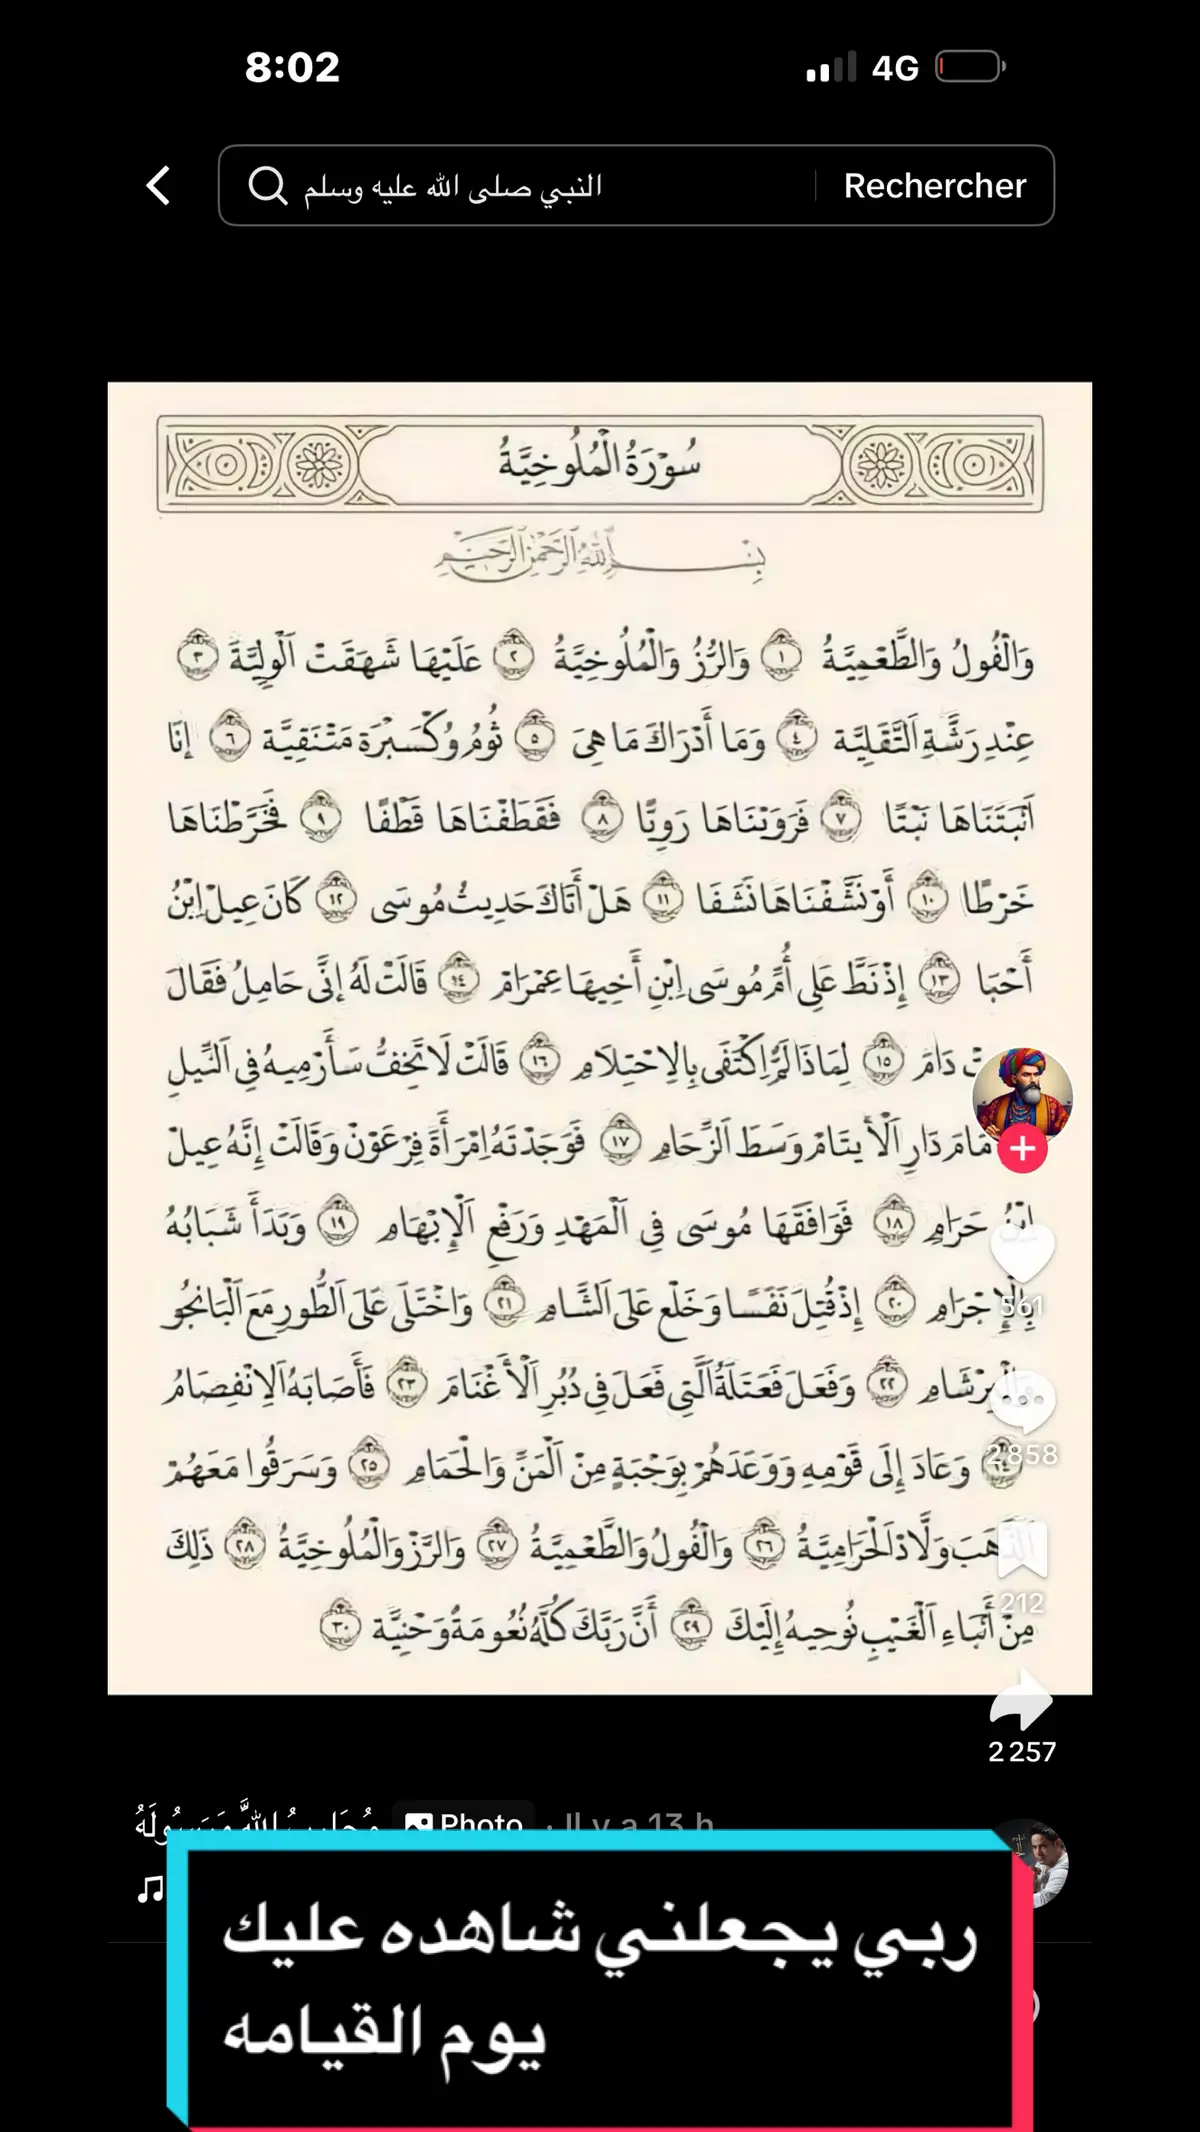 8:02
4G
النبي صلى الله عليه وسلم
Rechercher
سُورَةُ الْمُلُوخِيَّةُ
بِسْمِ اللَّهِ الرَّحْمَٰنِ الرَّحِيمِ
وَالْفُولُ وَالطَّعْمِيَّةُ ١ وَالرُّزُ وَالْمُلُوخِيَّةُ ٢ عَلَيْهَا شَهَقَتْ الْوِلِيَّةَ ٣
عِنْدِ رَشَّةِ التَّقَلِيَّة ٤ وَمَا أَدْرَاكَ مَا هِىَ ٥ ثُومُ وَكُسْبَرَة مَتْنَقِيَّة ٦ إِنَّا
أَنْبَتَنَاهَا نَبْتًا ٧ فَرَوَيْنَاهَا رَوِيًّا ٨ فَقَطَفْنَاهَا قَطْفًا ٩ فَخَرَّطْنَاهَا
خَرْطًا ١٠ أَوْ نَشَّفْنَاهَا نَشَفَا ١١ هَلْ أَتَاكَ حَدِيثُ مُوسَى ١٢ كَانَ عِيلْ اِبْنُ
أَحْبَا ١٣ إِذْ نَطَّ عَلِى أُمِّ مُوسَى اِبْنِ أَخِيهَا عِمْرَامْ ١٤ قَالَتْ لَهُ إِنَّى حَامِلُ فَقَالَ
دَامَ ١٥ لِمَاذَا لَمْ اِكْتَفَى بِالِاحْتِلَامِ ١٦ قَالَتْ لَا تَخِفُّ سَأَرْمِيهُ فِى النِّيلِ
دَارِ الْأَيتَامْ وَسَطَ الزِّحَامِ ١٧ فَوَجَدْتَهُ اِمْرَأَةَ فِرْعَوْنْ وَقَالَتْ إِنَّهُ عِيلْ
اِبْنُ حَرَامِ ١٨ فَوَافَقَهَا مُوسَى فِى الْمَهْدِ وَرَفْعِ الْإِبْهَامِ ١٩ وَبَدَأَ شَبَابُهُ
بِالْإِجْرَامِ ٢٠ إِذْ قُتِلَ نَفَسًا وَخَلْع عَلَى الشَّامِ ٢١ وَاخْتَلَى عَلَى الطُّورِ مَعَ الْبَانْجُو
وَالْبِرْشَامِ ٢٢ وَفَعَلَ فَعَتَلَةُ الَّتِى فَعَلَ فِى دُبُرِ الْأَغْنَامَ ٢٣ فَأَصَابَهُ الِانْفِصَامُ
٢٤ وَعَادَ إِلَى قَوْمِهِ وَوَعَدَهُمْ بِوَجْبَةٍ مِنْ الْمَنِّ وَالْحَمَامِ ٢٥ وَسَرَقُوا مَعَهُمْ
الذَّهَبَ وَلَّادْ الْحَرَامِيَّةُ ٢٦ وَالْفُولُ وَالطَّعْمِيَّةُ ٢٧ وَالرَّزْ وَالْمُلُوخِيَّةُ ٢٨ ذَلِكَ
مِنْ أَنْبَاءِ الْغَيْبِ نُوحِيهُ إِلَيْكَ ٢٩ أَنَّ رَبَّكَ كُلَّهُ نُعُومَةُ وَحْنِيَّة ٣٠
561
2858
212
2 257
مُحَارِبُ اللَّهَ وَرَسُولَهُ
Photo · Il y a 13 h
ربي يجعلني شاهده عليك
يوم القيامه